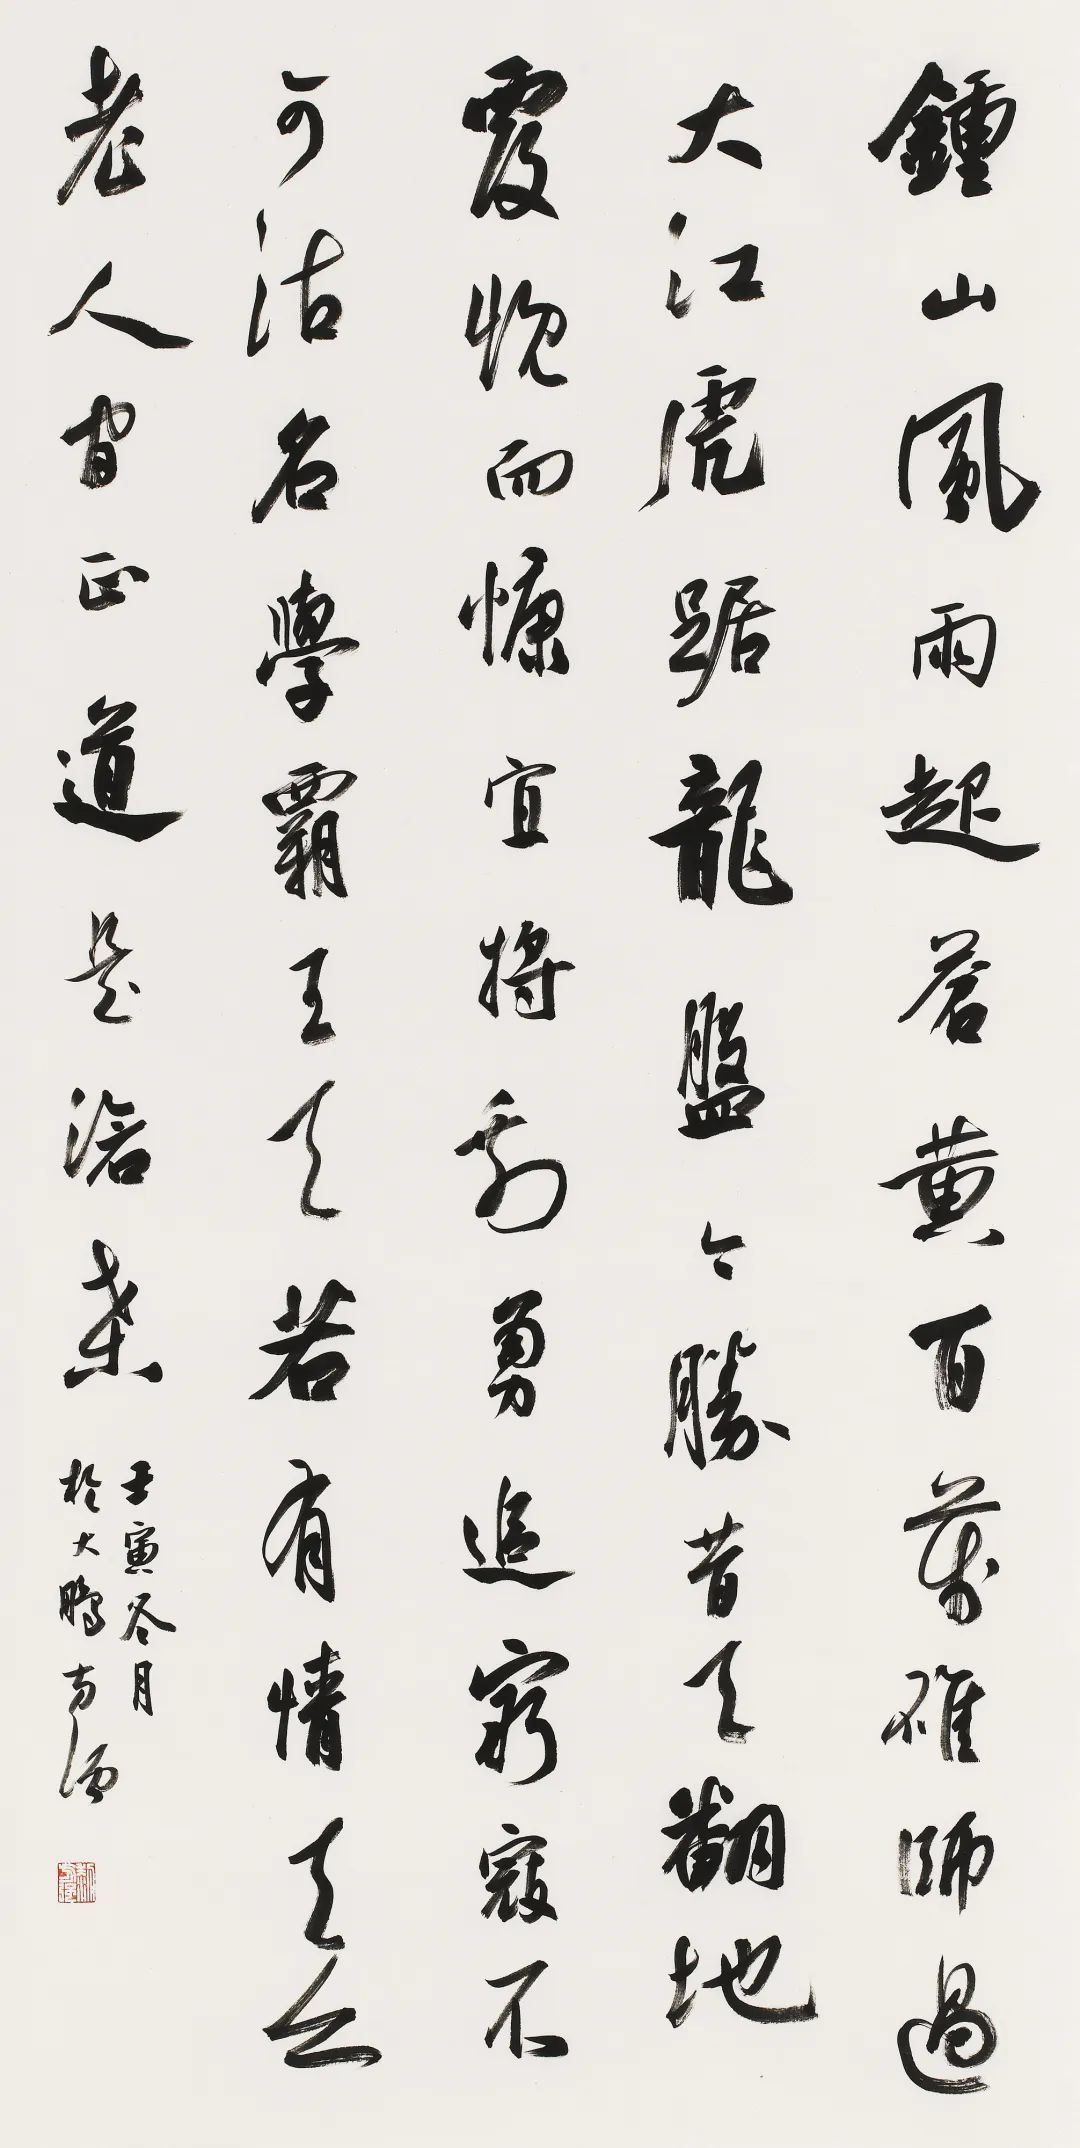 鍾山風雨起蒼黄百萬雄師過
大江虎踞龍盤今勝昔天翻地
覆慨而慷宜將剩勇追窮寇不
可沽名學霸王天若有情天亦
老人間正道是滄桑
壬寅冬月
於大鵬